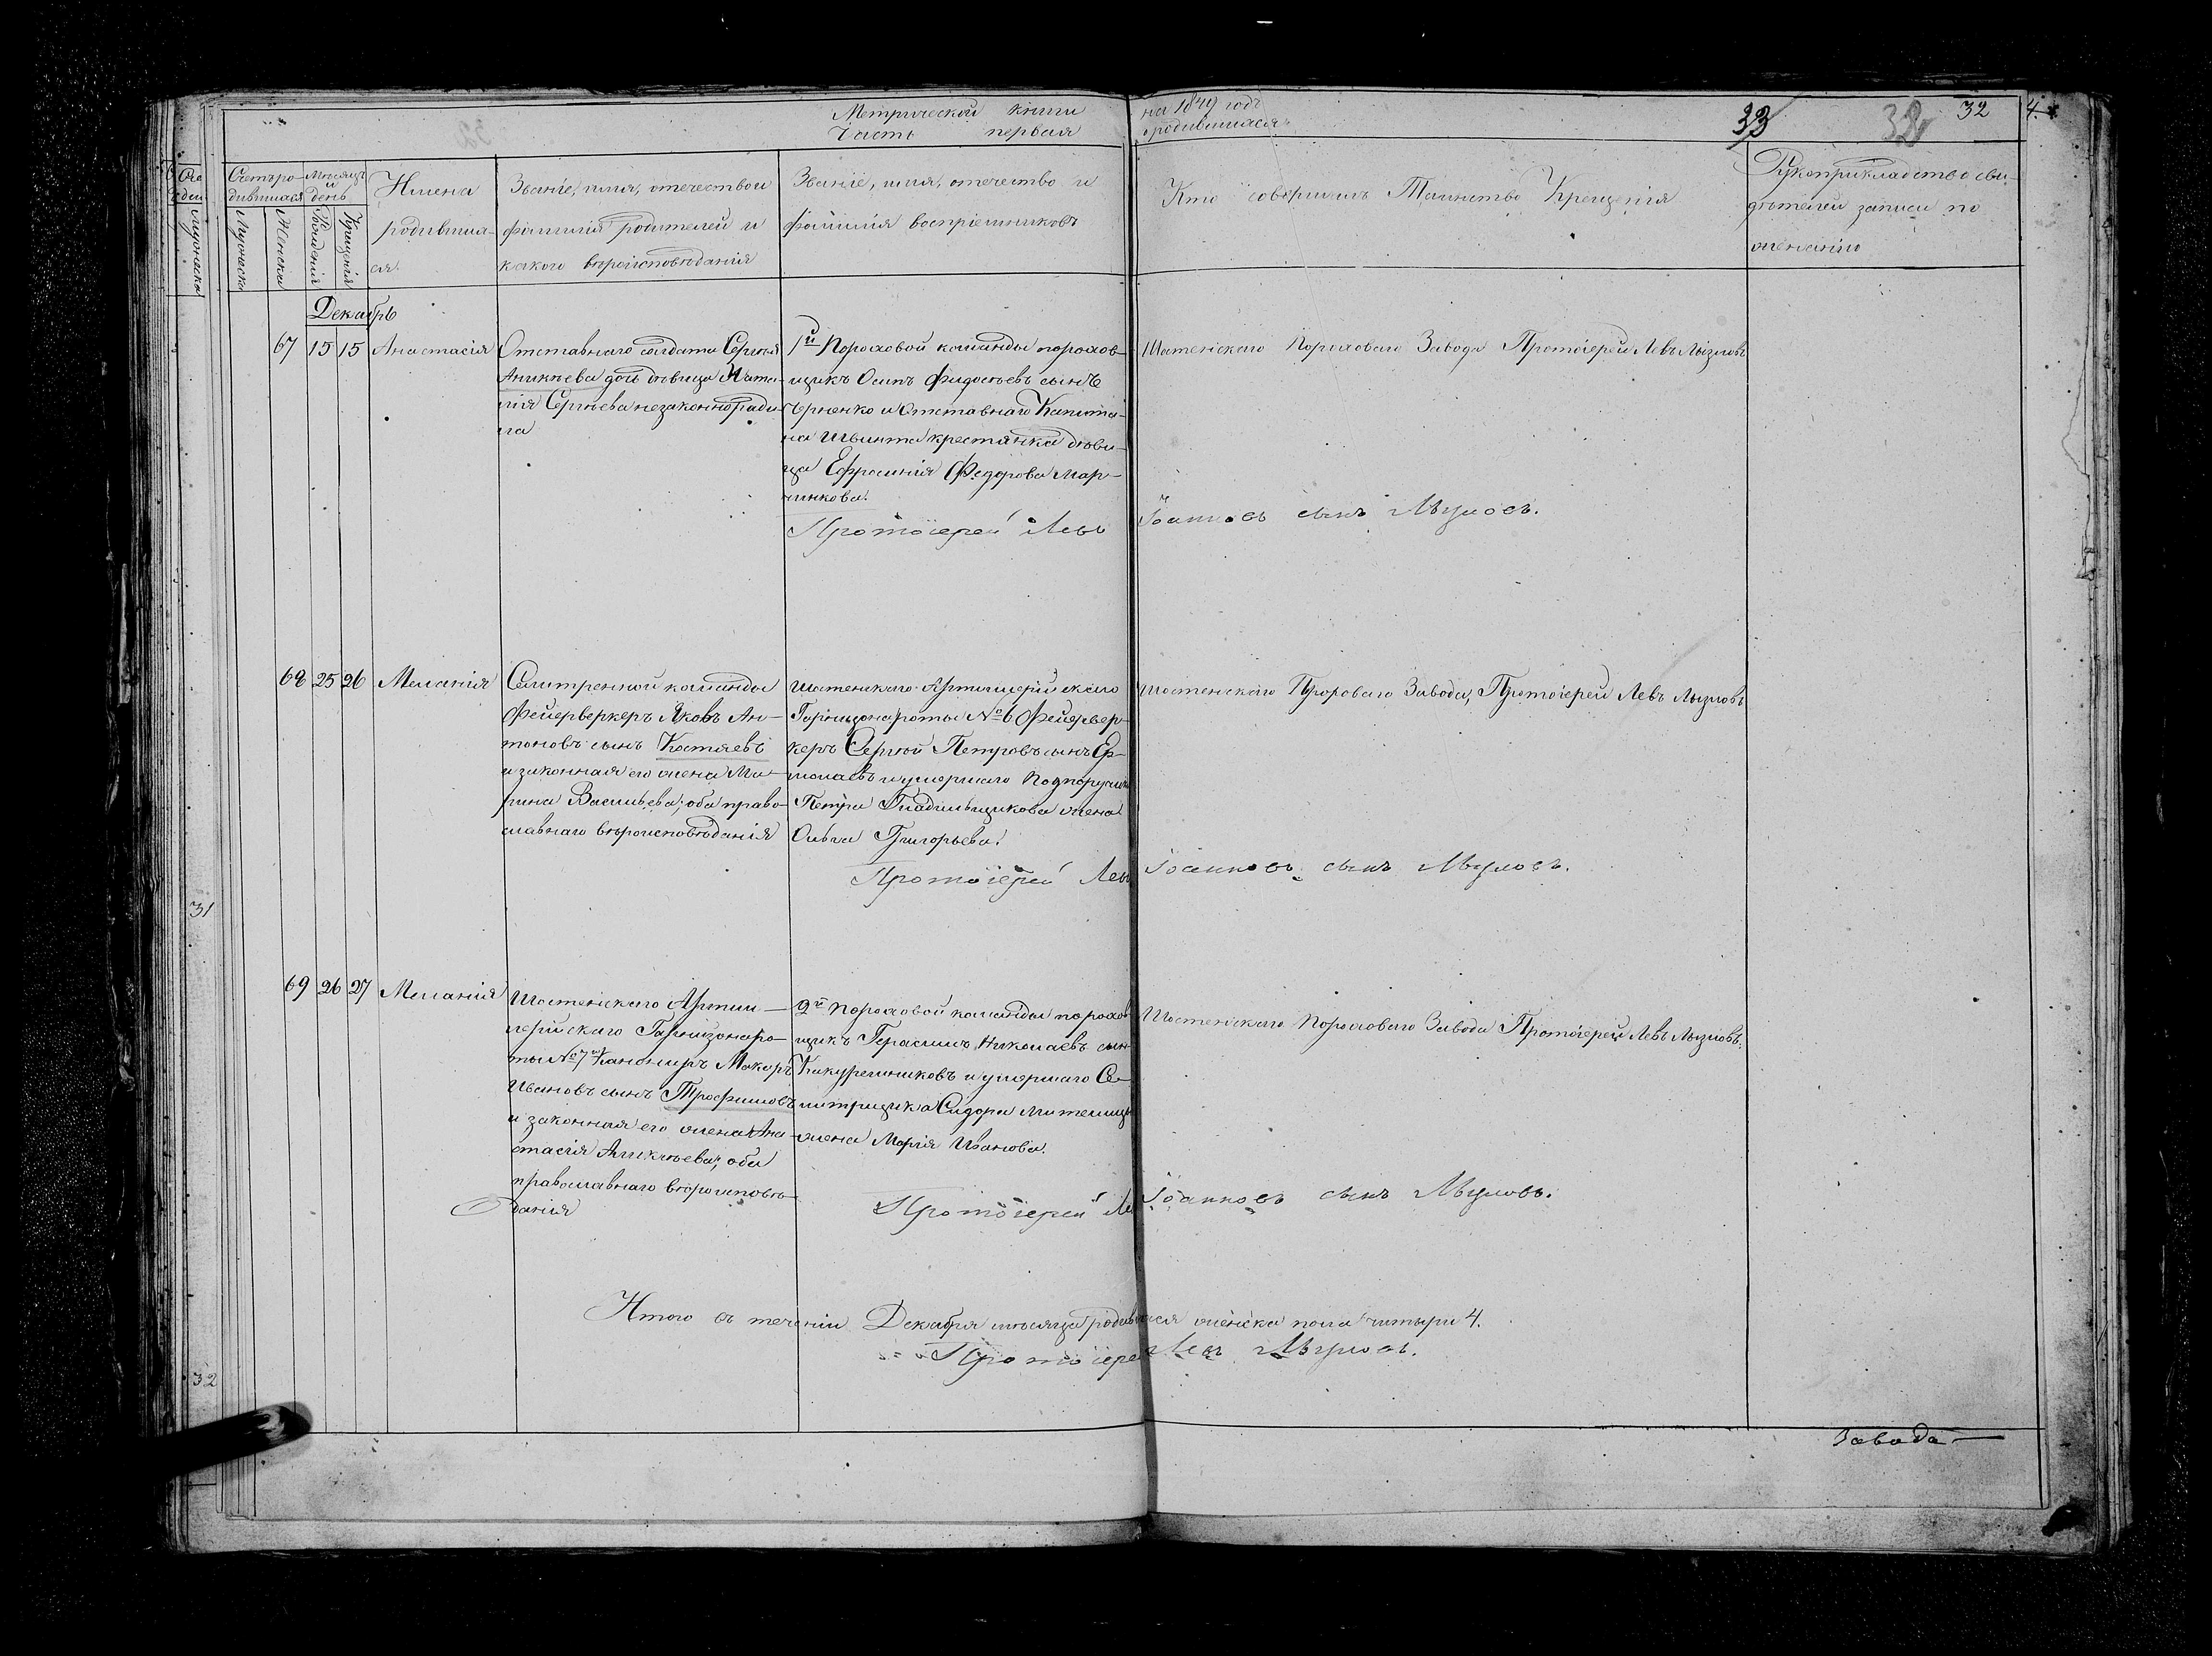 Метрической книги на 1849 годъ
Часть первая о родившихся
33 32 32 4.
Счетъ родившихся
Мѣсяцъ и день
Мужеска
Женска
Рожденія
Крещенія
Имена
родивших-
ся.
Званіе, имя, отечество и
фамилія родителей и
какого вѣроисповѣданія
Званіе, имя, отечество и
фамилія воспріемниковъ
Кто совершилъ Таинство Крещенія
Рукоприкладство сви-
дѣтелей записи по
желанію
Декабрь
67 15 15 Анастасія
Отставнаго солдата Сергѣя
Аникѣева дочь дѣвица Ната-
лія Сергѣева незаконно роди-
ла
1й Пороховой команды порохов-
щикъ Осипъ Фидосѣевъ сынъ
Черненко и Отставнаго Капита-
на Ильинта крестянка дѣви-
ца Ефросинія Федорова Мар-
чинкова.
Шостенскаго Пороховаго Завода Протоіерей Левъ Лызловъ
Протоіерей Левъ Іоанновъ сынъ Лызловъ.
68 25 26 Меланія
Селитренной команды
Фейерверкеръ Яковъ Ан-
тоновъ сынъ Костяевъ
и законная его жена Ма-
рина Васильева, оба право-
славнаго вѣроисповѣданія
Шостенскаго Артиллерійскаго
Гарнизона роты №6 Фейервер-
керъ Сергѣй Петровъ сынъ Ер-
молаевъ и умершаго Подпоручика
Петра Гладильщикова жена
Ольга Григорьева.
Шостенскаго Пороховаго Завода, Протоіерей Левъ Лызловъ
Протоіерей Левъ Іоанновъ сынъ Лызловъ.
31
69 26 27 Меланія
Шостенскаго Артил-
лерійскаго Гарнизона ро-
ты №7й Канониръ Макаръ
Ивановъ сынъ Трофимовъ
и законная его жена Ана-
стасія Аникѣева, оба
православнаго вѣроисповѣ-
данія
2й Пороховой команды порохов-
щикъ Герасимъ Николаевъ сынъ
Какурешниковъ и умершаго Се-
литрщика Сидора
жена Марія Иванова.
Шостенскаго Пороховаго Завода Протоіерей Левъ Лызловъ.
Протоіерей Левъ Іоанновъ сынъ Лызловъ.
Итого въ теченіи Декабря мѣсяца родившихся женска пола четыри 4.
Протоіерей Левъ Лызловъ.
32
Завода